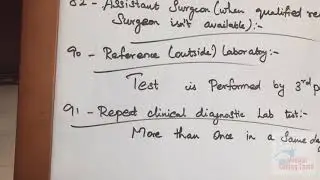 82 - Assistant Surgeon (when qualified re
Surgeon isn't available):-
90 - Reference (outside) Laboratory:-
Test is Performed by 3rd p
91 - Repeat clinical diagnostic Lab test:-
More than once in a Same da